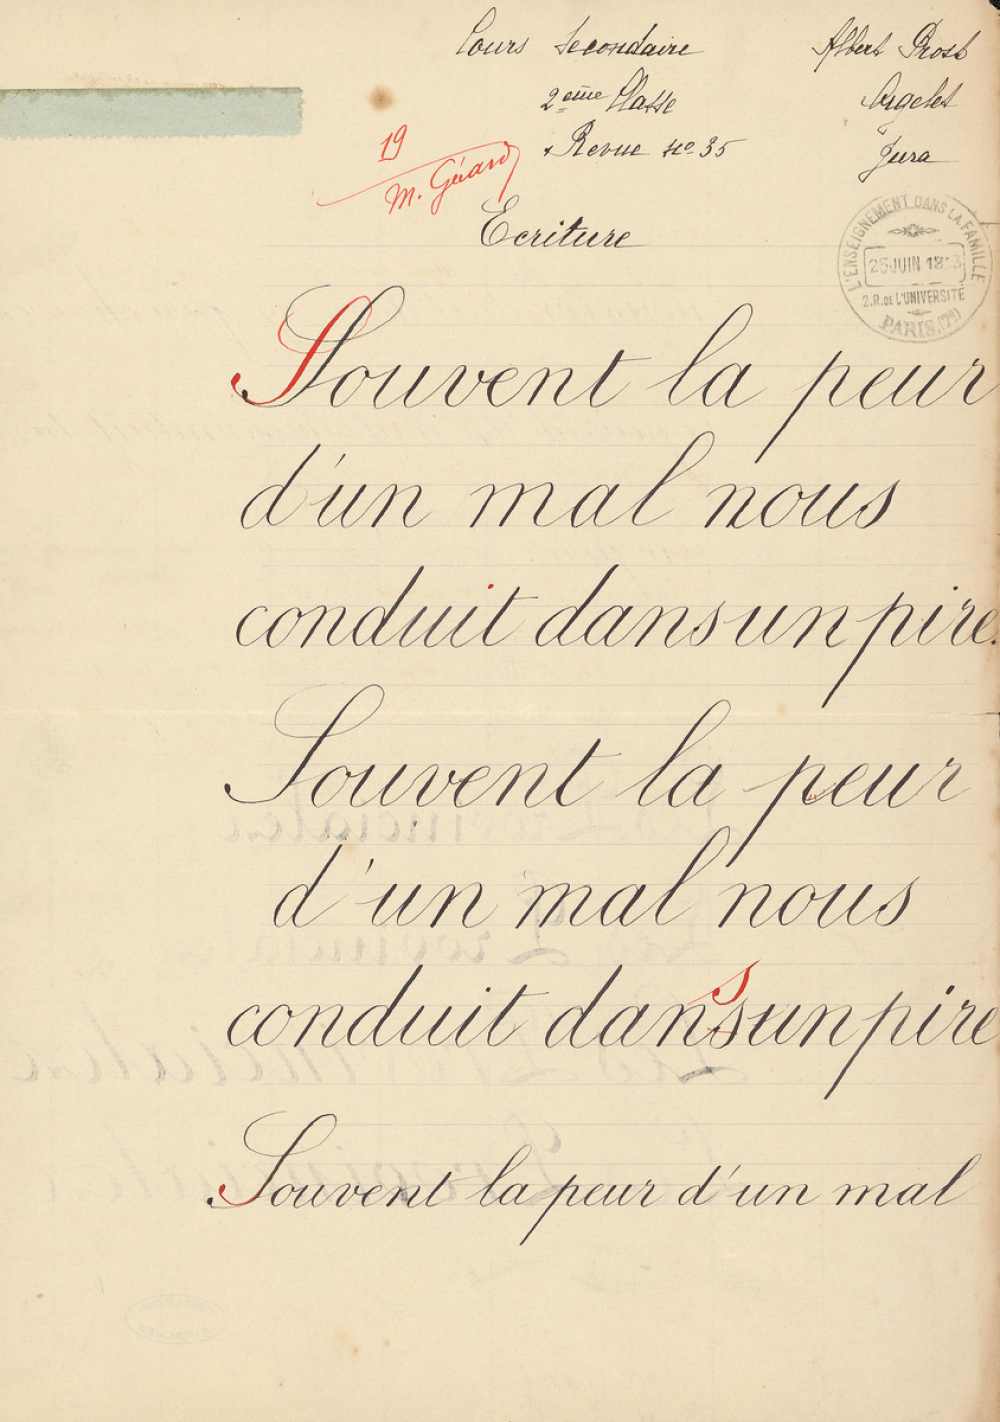 Cours Secondaire
2ème Classe
Revue No 35
Albert Prost
Orgelet
Jura
19
M. Géard
Ecriture
L'ENSEIGNEMENT DANS LA FAMILLE
25 JUIN
2.R. DE L'UNIVERSITÉ
PARIS.(7e)
Souvent la peur
d'un mal nous
conduit dans un pire.
Souvent la peur
d'un mal nous
s
conduit dans un pire
Souvent la peur d'un mal